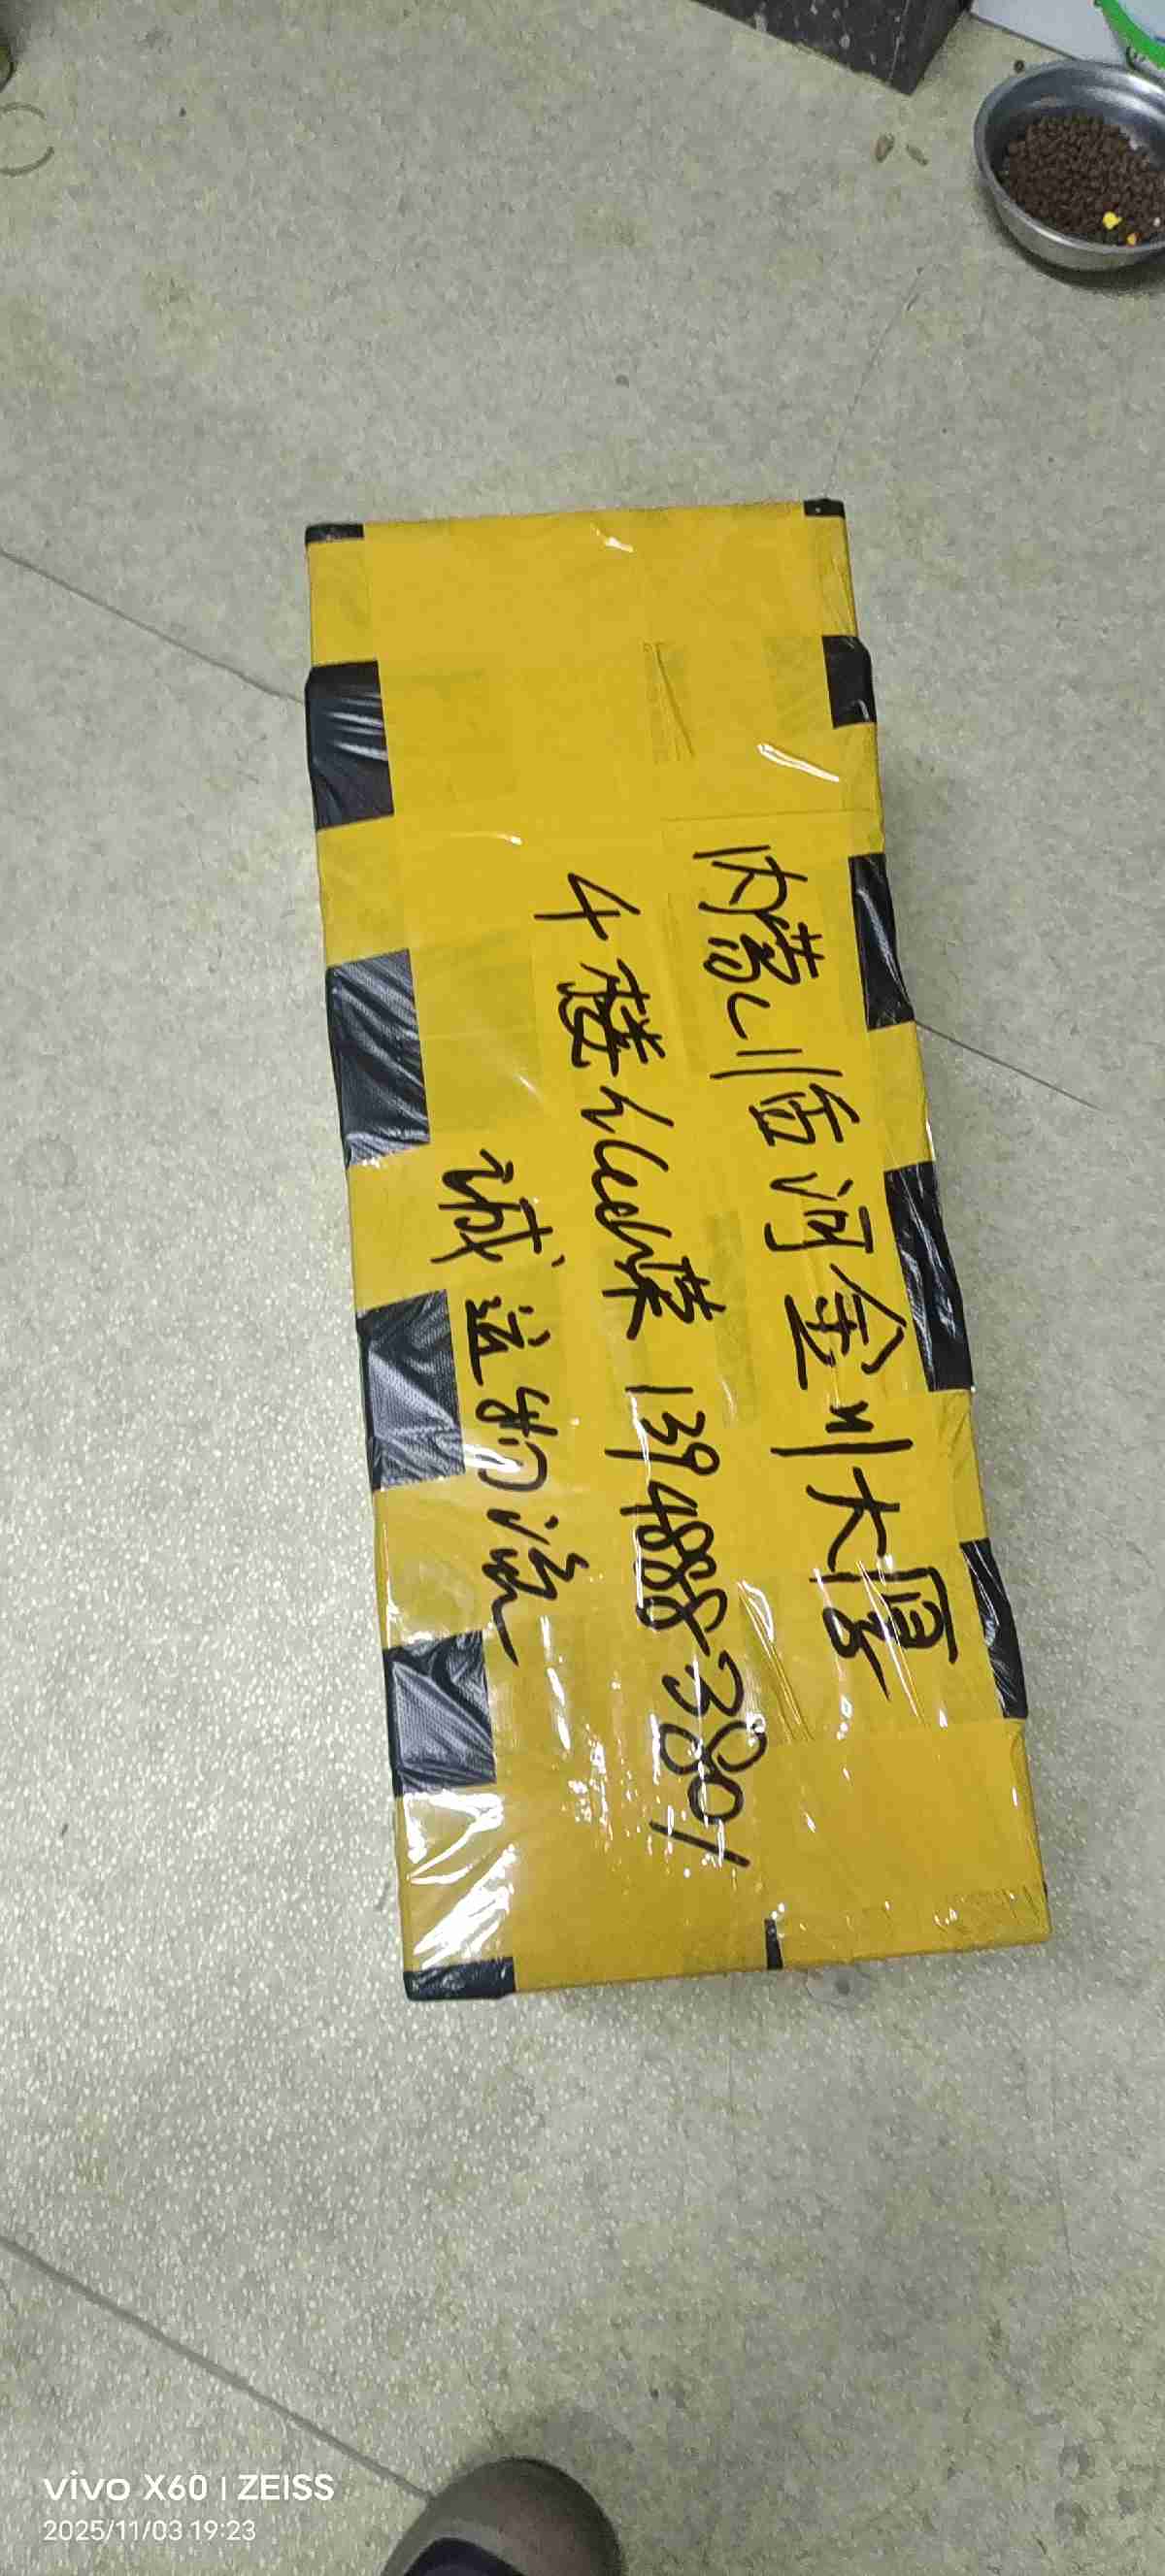 内蒙 临河金川大厦
4楼 荣 13948883801
诚运物流
vivo X60 | ZEISS
2025/11/03 19:23